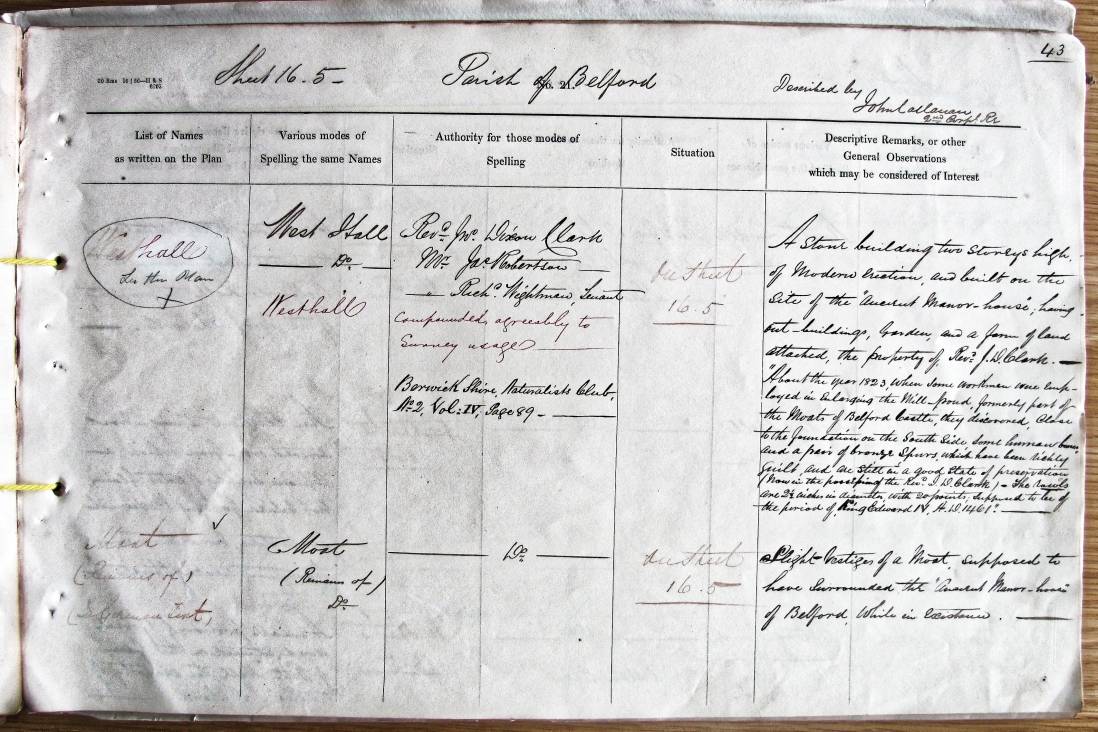 43
Sheet 16.5 -
Parish of Belford
No. 21.
Described by
John Callanan
2nd Corpl. Re
List of Names
as written on the Plan
Various modes of
Spelling the same Names
Authority for those modes of
Spelling
Situation
Descriptive Remarks, or other
General Observations
which may be considered of Interest
Westhall
On the Plan
X
West Hall
Do.
Westhall
Revd. Jno. Dixon Clark
Mr. Jas. Robertson
" Richd. Wightman, Tenant
Compounded, agreeably to
Survey usage
Berwick Shire, Naturalists Club,
No. 2, Vol: IV, Page 89 -
On Sheet
16.5
A Stone building two Storeys high,
of Modern erection, and built on the
Site of the "Ancient Manor-house"; having
out-buildings, Garden, and a farm of land
attached, the property of Revd. J. D. Clark. -
"About the year 1823, when Some workmen were emp-
loyed in Enlarging the Mill-pond, formerly part of
the Moats of Belford Castle, they discovered, Close
to the foundation on the South Side, some human bones
and a pair of bronze Spurs, which have been richly
guilt, and are Still in a good State of preservation
(Now in the possession of the Revd. J. D. Clark) - The rowels
are 2½ inches in diameter, with 20 points; Supposed to be of
the period of King Edward IV, A.D. 1461".
Moat
(Remains of)
Moat
(Remains of)
Do.
Do.
On Sheet
16.5
Slight Vestiges of a Moat, Supposed to
have Surrounded the "Ancient Manor-house"
of Belford, While in existence.